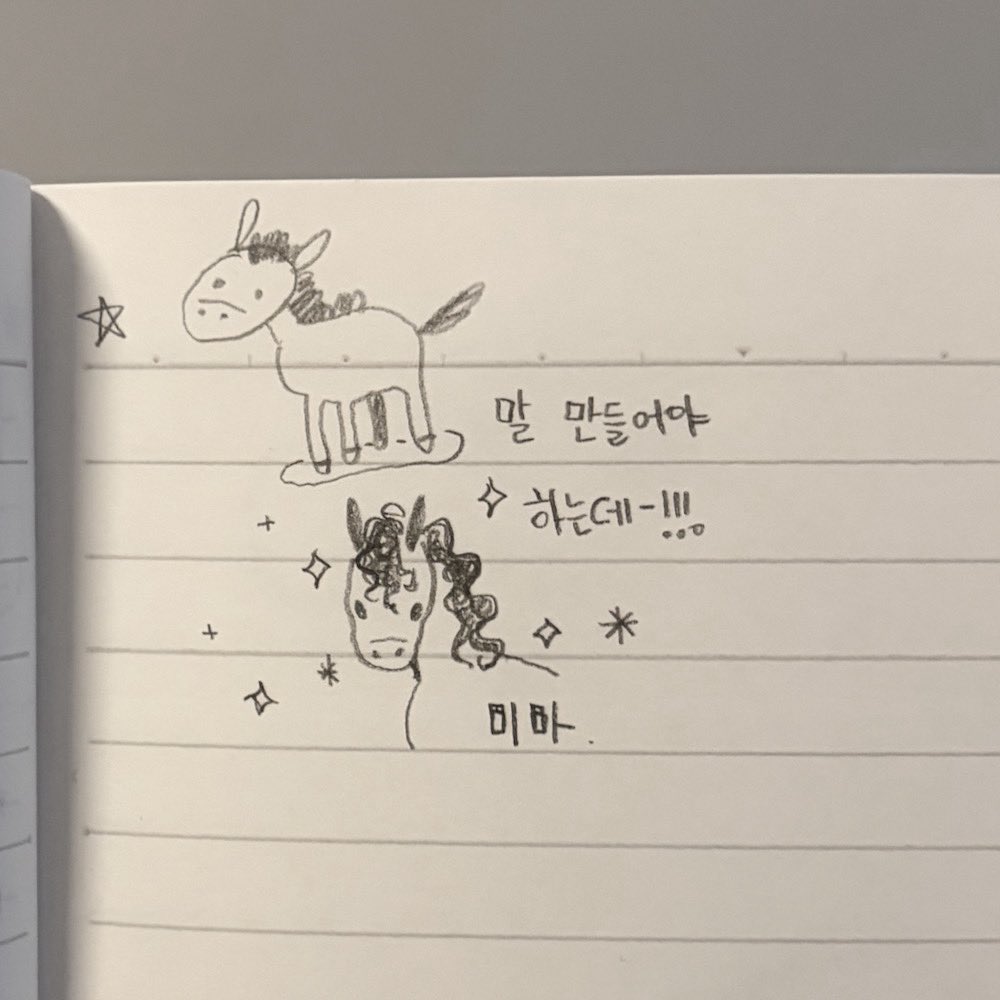 말 만들어야
하는데-!!!
미마.